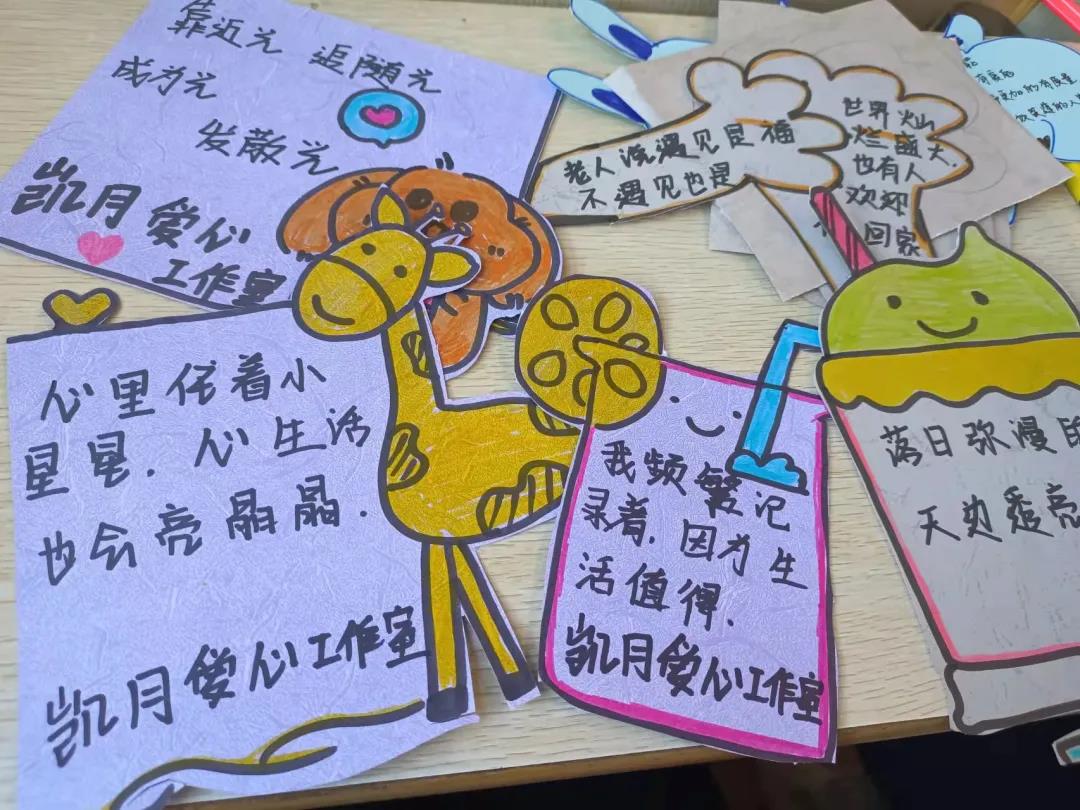 靠近光 追随光
成为光
发散光
凯月爱心
工作室
老人说遇见是福
不遇见也是
世界灿
烂盛大
也有人
欢迎
回家
心里住着小
星星.心生活
也会亮晶晶.
凯月爱心工作室
我频繁记
录着.因为生
活值得.
凯月爱心工作室
落日弥漫的
天边透亮
有质感
更加的有质量